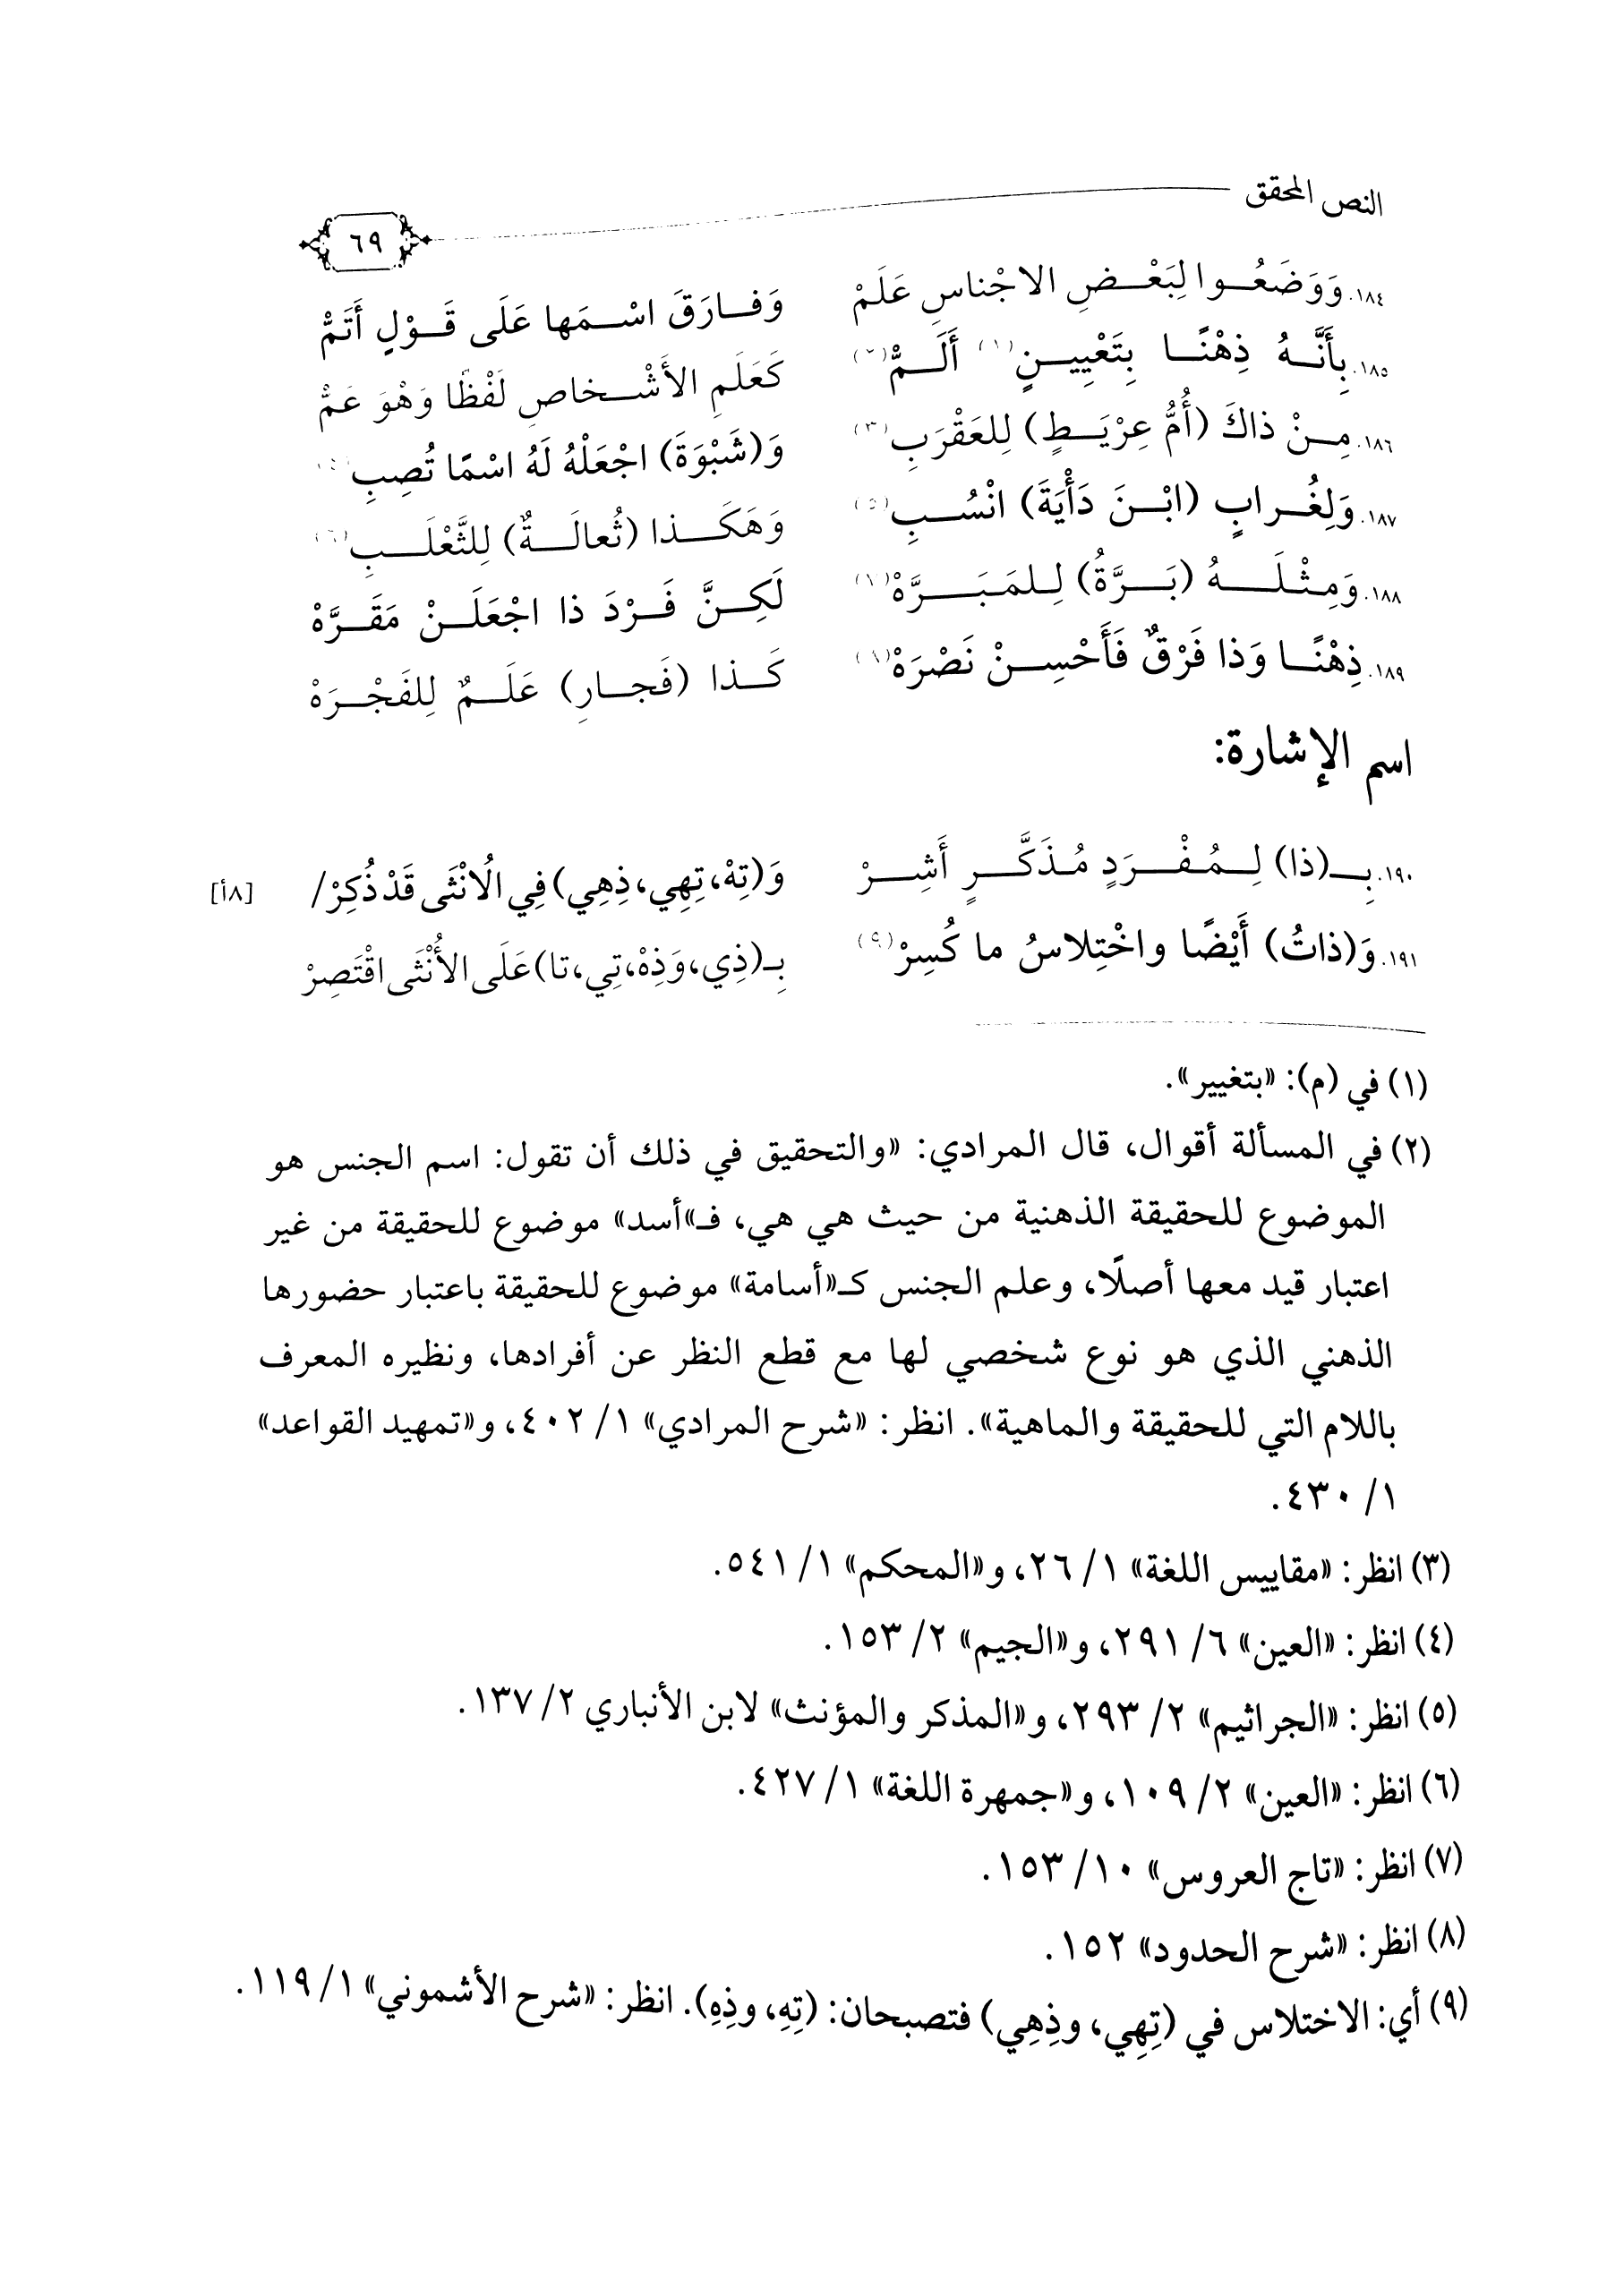 النص المحقق
٦٩
١٨٤. وَوَضَعُوا لِبَعْضِ الاجْناسِ عَلَمْ وَفارَقَ اسْمَها عَلَى قَوْلٍ أَتَمّْ
١٨٥. بِأَنَّهُ ذِهْنًا بِتَعْيِينٍ(١) أَلَمّْ(٢) كَعَلَمِ الأَشْخاصِ لَفْظًا وَهْوَ عَمّْ
١٨٦. مِنْ ذاكَ (أُمُّ عِرْيَطٍ) لِلعَقْرَبِ(٣) وَ(شَبْوَةَ) اجْعَلْهُ لَهُ اسْمًا تُصِبِ(٤)
١٨٧. وَلِغُرابٍ (ابْنَ دَأْيَةَ) انْسُبِ(٥) وَهَكَذا (ثُعالَةٌ) لِلثَّعْلَبِ(٦)
١٨٨. وَمِثْلَهُ (بَرَّةُ) لِلمَبَرَّهْ(٧) لَكِنَّ فَرْدَ ذا اجْعَلَنْ مَقَرَّهْ
١٨٩. ذِهْنًا وَذا فَرْقٌ فَأَحْسِنْ نَصْرَهْ(٨) كَذا (فَجارِ) عَلَمٌ لِلفَجْرَهْ
اسم الإشارة:
١٩٠. بِـ(ذا) لِمُفْرَدٍ مُذَكَّرٍ أَشِرْ وَ(تِهْ، تِهِي، ذِهِي) فِي الُانْثَى قَدْ ذُكِرْ/ [٨أ]
١٩١. وَ(ذاتُ) أَيْضًا واخْتِلاسُ ما كُسِرْ(٩) بِـ(ذِي، وَذِهْ، تِي، تا) عَلَى الأُنْثَى اقْتَصِرْ
(١) في (م): «بتغيير».
(٢) في المسألة أقوال، قال المرادي: «والتحقيق في ذلك أن تقول: اسم الجنس هو
الموضوع للحقيقة الذهنية من حيث هي هي، فـ»أسد» موضوع للحقيقة من غير
اعتبار قيد معها أصلًا، وعلم الجنس كـ«أسامة» موضوع للحقيقة باعتبار حضورها
الذهني الذي هو نوع شخصي لها مع قطع النظر عن أفرادها، ونظيره المعرف
باللام التي للحقيقة والماهية». انظر: «شرح المرادي» ١/ ٤٠٢، و«تمهيد القواعد»
١/ ٤٣٠.
(٣) انظر: «مقاييس اللغة» ١/ ٢٦، و«المحكم» ١/ ٥٤١.
(٤) انظر: «العين» ٦/ ٢٩١، و«الجيم» ٢/ ١٥٣.
(٥) انظر: «الجراثيم» ٢/ ٢٩٣، و«المذكر والمؤنث» لابن الأنباري ٢/ ١٣٧.
(٦) انظر: «العين» ٢/ ١٠٩، و«جمهرة اللغة» ١/ ٤٢٧.
(٧) انظر: «تاج العروس» ١٠/ ١٥٣.
(٨) انظر: «شرح الحدود» ١٥٢.
(٩) أي: الاختلاس في (تِهِي، وذِهِي) فتصبحان: (تِهِ، وذِهِ). انظر: «شرح الأشموني» ١/ ١١٩.